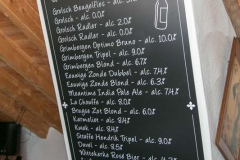 Grolsch Beugelfles - alc. 5.0%
Grolsch - alc. 0.0%
Grolsch Radler - alc. 2.0%
Grolsch Radler - alc. 0.0%
Grimbergen Optimo Bruno - alc. 10.0%
Grimbergen Tripel - alc. 9.0%
Grimbergen Blond - alc. 6.7%
Eeuwige Zonde Dubbel - alc. 7.4%
Eeuwige Zonde Blond - alc. 7.4%
Meantime India Pale Ale - alc. 7.4%
La Chouffe - alc. 8.0%
Brugse Zot Blond - alc. 6.0%
Karmeliet - alc. 8.4%
Kwak - alc. 8.4%
Straffe Hendrik Tripel - alc. 9.0%
Duvel - alc. 8.5%
Wittekerke Rosé Bier - alc.